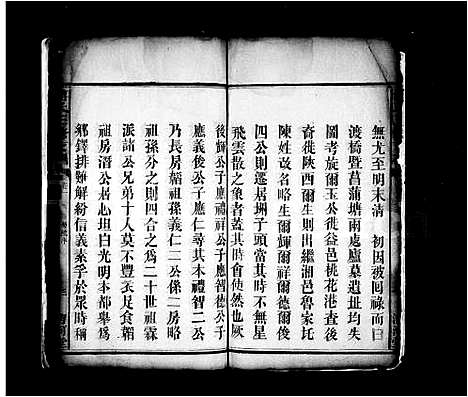 無尤至明末清　初因被回祿而曰
渡橋暨菖蒲塘兩處廬墓遺址均失
圖考旋爾玉公徙益邑桃花港查後
裔徙陝西爾生則出繼湘邑魯家圫
陳姓改名略生爾輝爾祥爾德爾俊
四公則遷居圳子頭當其時不無星
飛雲散之象者蓋其時會使然也厥
後輝公子應禮祥公子應智德公子
應義俊公子應仁尋其本禮智二公
乃長房韜祖孫義仁二公係二房略
祖孫分之則四合之為二十世祖霖
派諸公兄弟十人莫不豐衣足食韜
祖房潛公居心坦白光明本都舉為
鄉鐸排難解紛信義素孚於眾時稱